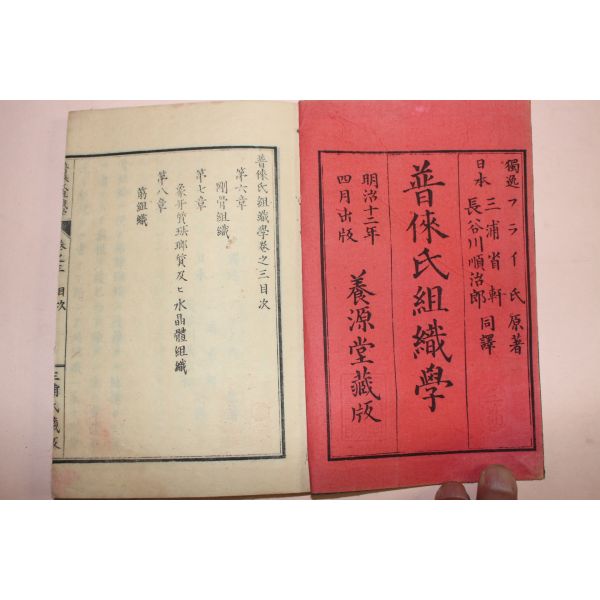 獨逸 フライ氏 原著
日本 三浦省軒
長谷川順治郎 同譯
普徠氏組織學
明治十二年
四月出版
養源堂藏版
普徠氏組織學卷之三目次
第六章
剛骨組織
第七章
象牙質琺瑯質及ヒ水晶體組織
第八章
筋組織
卷之三 目次
三浦氏藏版